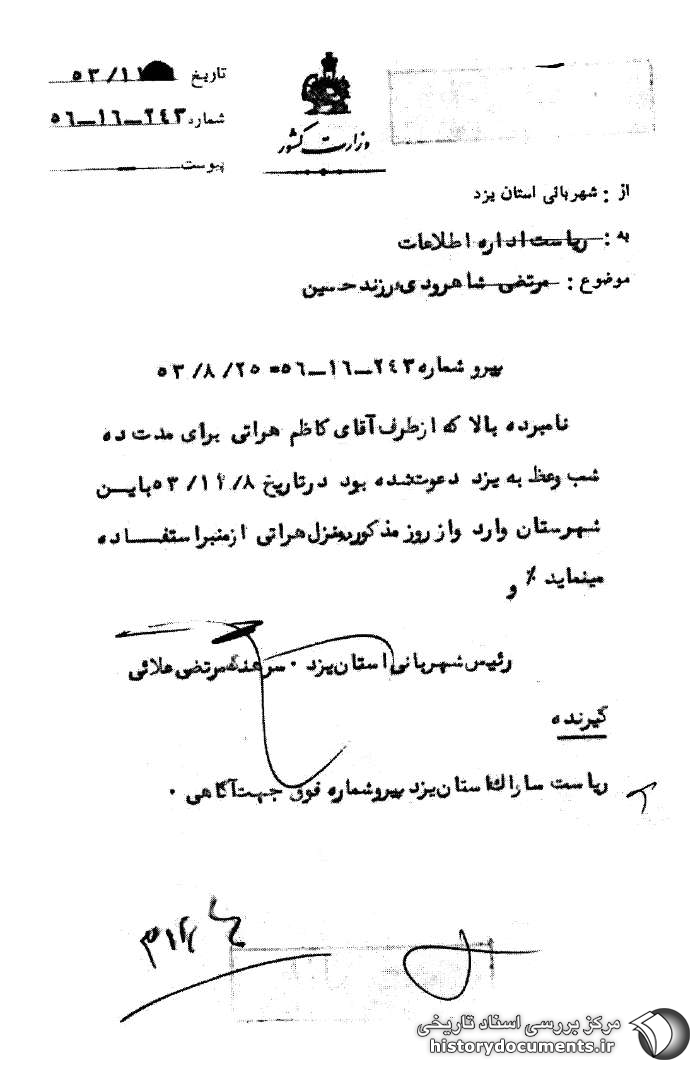 تاریخ ۵۳/۱۱
شماره ۲۴۳-۱۶-۵۶
پیوست
وزارت کشور
از : شهربانی استان یزد
به : ریاست اداره اطلاعات
موضوع : مرتضی شاهرودی فرزند حسین
پیرو شماره ۲۴۳-۱۶-۵۶=۲۵/۸/۵۳
نامبرده بالا که از طرف آقای کاظم هراتی برای مدت ده
شب وعظ به یزد دعوت شده بود در تاریخ ۸/۱۰/۵۳ باین
شهرستان وارد و از روز مذکور در منزل هراتی از منبر استفاده
مینماید ٪ و
رئیس شهربانی استان یزد . سرهنگ مرتضی علائی
گیرنده
ریاست ساواک استان یزد پیرو شماره فوق جهت آگاهی .
مرکز بررسی اسناد تاریخی
historydocuments.ir